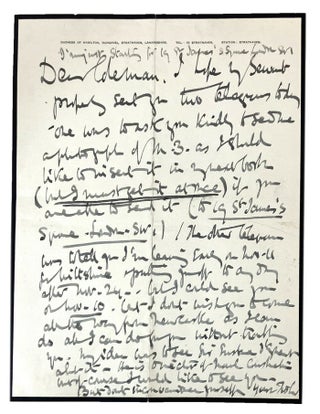 DUCHESS OF HAMILTON, DUNGAVEL, STRATHAVEN, LANARKSHIRE. TEL. STRATHAVEN. STATION: STRATHAVEN.
I'm just starting for 19 St James's Square London SW1
Dear Coleman. I hope my servant
properly sent you two telegrams today
- one was to ask you kindly to send me
a photograph of Mr. B. as I should
like to insert it in my next book
(but I must get it at once) if you
are able to send it (to 19 St James's
Square - London - SW.1) / The other telegram
was to tell you I'm leaving early on Nov. 11
for Wiltshire & putting you off to any day
after Nov. 24 - but I could see you
on Nov. 10. but I don't wish you to come
all the way from Newcastle as I can
do all I can do for you without troubling
you. My idea was to see Sir
about it - He is
cause & I would like to see you -
But don't inconvenience yourself